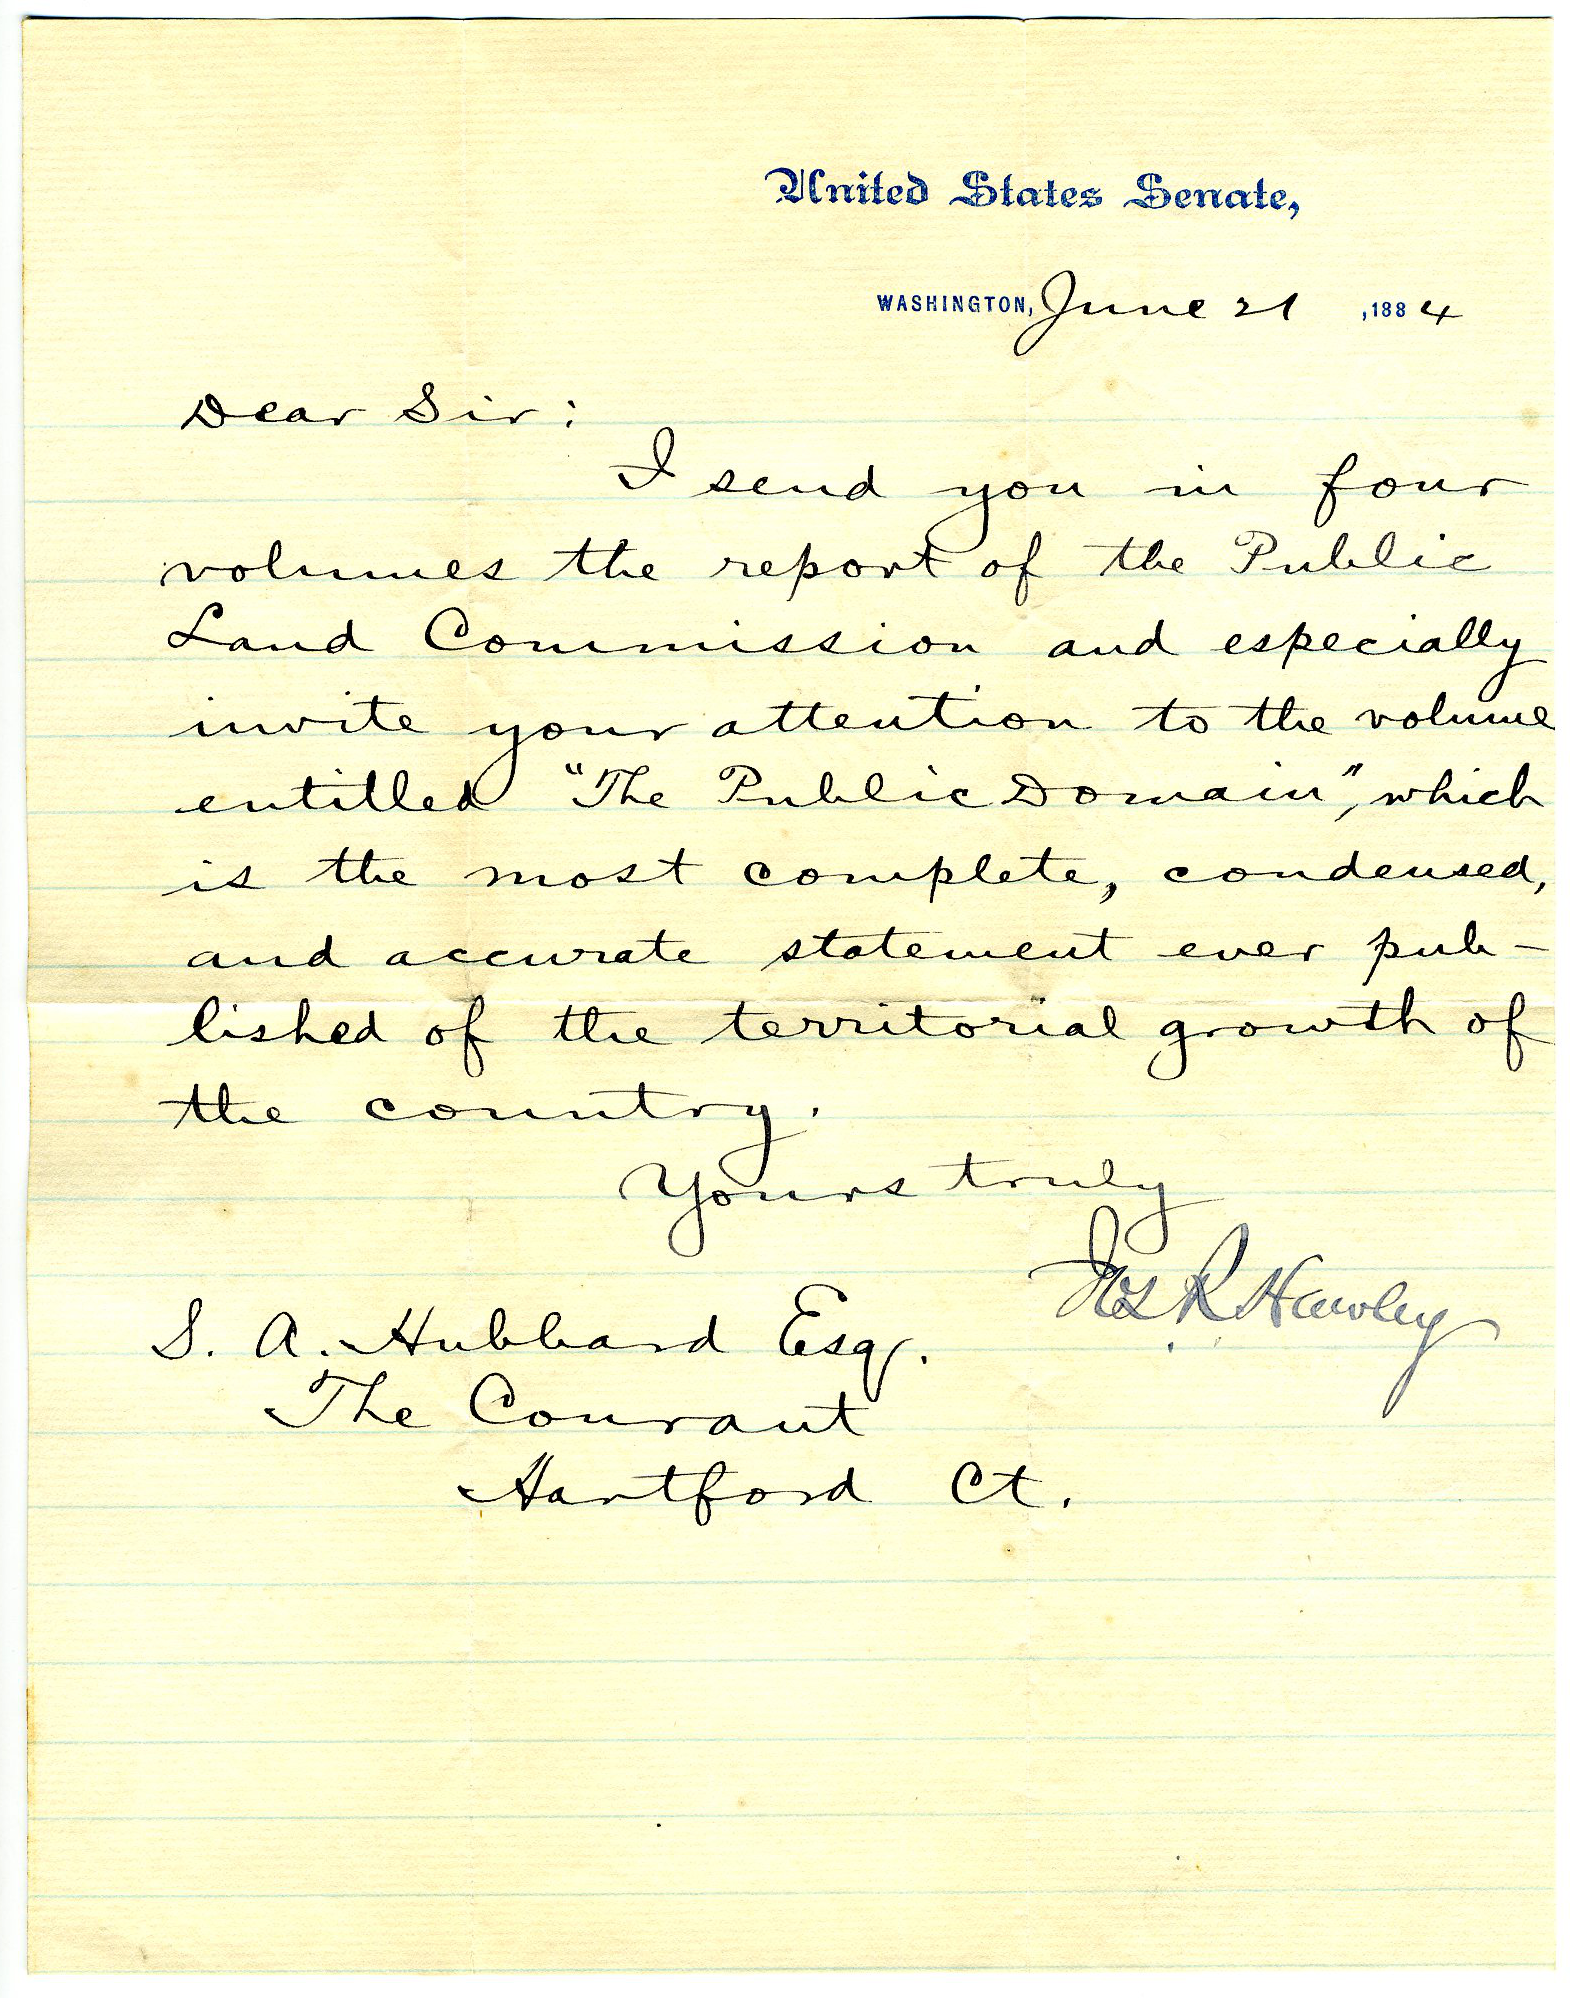 United States Senate,
WASHINGTON, June 21 , 1884
Dear Sir:
I send you in four
volumes the report of the Public
Land Commission and especially
invite your attention to the volume
entitled "The Public Domain", which
is the most complete, condensed,
and accurate statement ever pub-
lished of the territorial growth of
the country.
Yours truly
Jos R Hawley
S. A. Hubbard Esq.
The Courant
Hartford Ct.